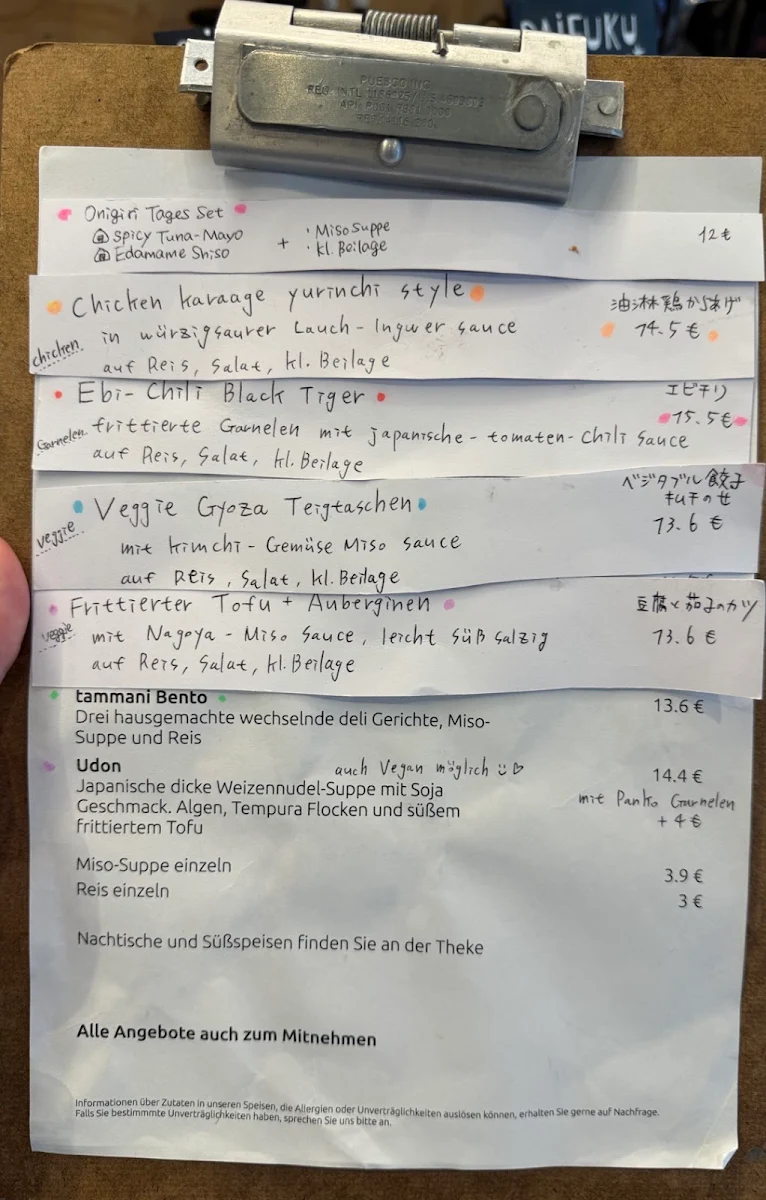 DAIFUKU
Onigiri Tages Set
Spicy Tuna-Mayo
Edamame Shiso
+
・Miso Suppe
・kl. Beilage
12 €
Chicken karaage yurinchi style
油淋鶏からあげ
chicken
in würzigsaurer Lauch-Ingwer sauce
14.5 €
auf Reis, Salat, kl. Beilage
Ebi-Chili Black Tiger
エビチリ
15.5 €
Garnelen
frittierte Garnelen mit japanische-tomaten-chili sauce
auf Reis, Salat, kl. Beilage
Veggie Gyoza Teigtaschen
ベジタブル餃子
キムチのせ
veggie
13.6 €
mit kimchi-Gemüse Miso sauce
auf Reis, Salat, kl. Beilage
Frittierter Tofu + Auberginen
豆腐と茄子のカツ
veggie
mit Nagoya-Miso Sauce, leicht süß salzig
13.6 €
auf Reis, Salat, kl. Beilage
tammani Bento
13.6 €
Drei hausgemachte wechselnde deli Gerichte, Miso-
Suppe und Reis
Udon
auch Vegan möglich
14.4 €
Japanische dicke Weizennudel-Suppe mit Soja
Geschmack. Algen, Tempura Flocken und süßem
frittiertem Tofu
mit Panko Garnelen
+ 4 €
Miso-Suppe einzeln
3.9 €
Reis einzeln
3 €
Nachtische und Süßspeisen finden Sie an der Theke
Alle Angebote auch zum Mitnehmen
Informationen über Zutaten in unseren Speisen, die Allergien oder Unverträglichkeiten auslösen können, erhalten Sie gerne auf Nachfrage.
Falls Sie bestimmmte Unverträglichkeiten haben, sprechen Sie uns bitte an.